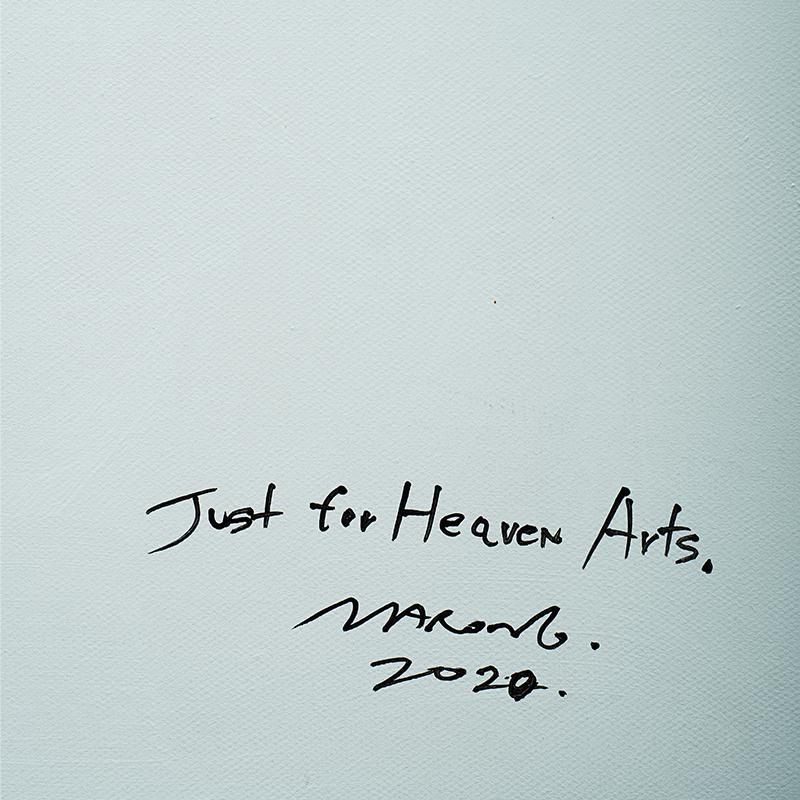 Just for Heaven Arts.
2020.